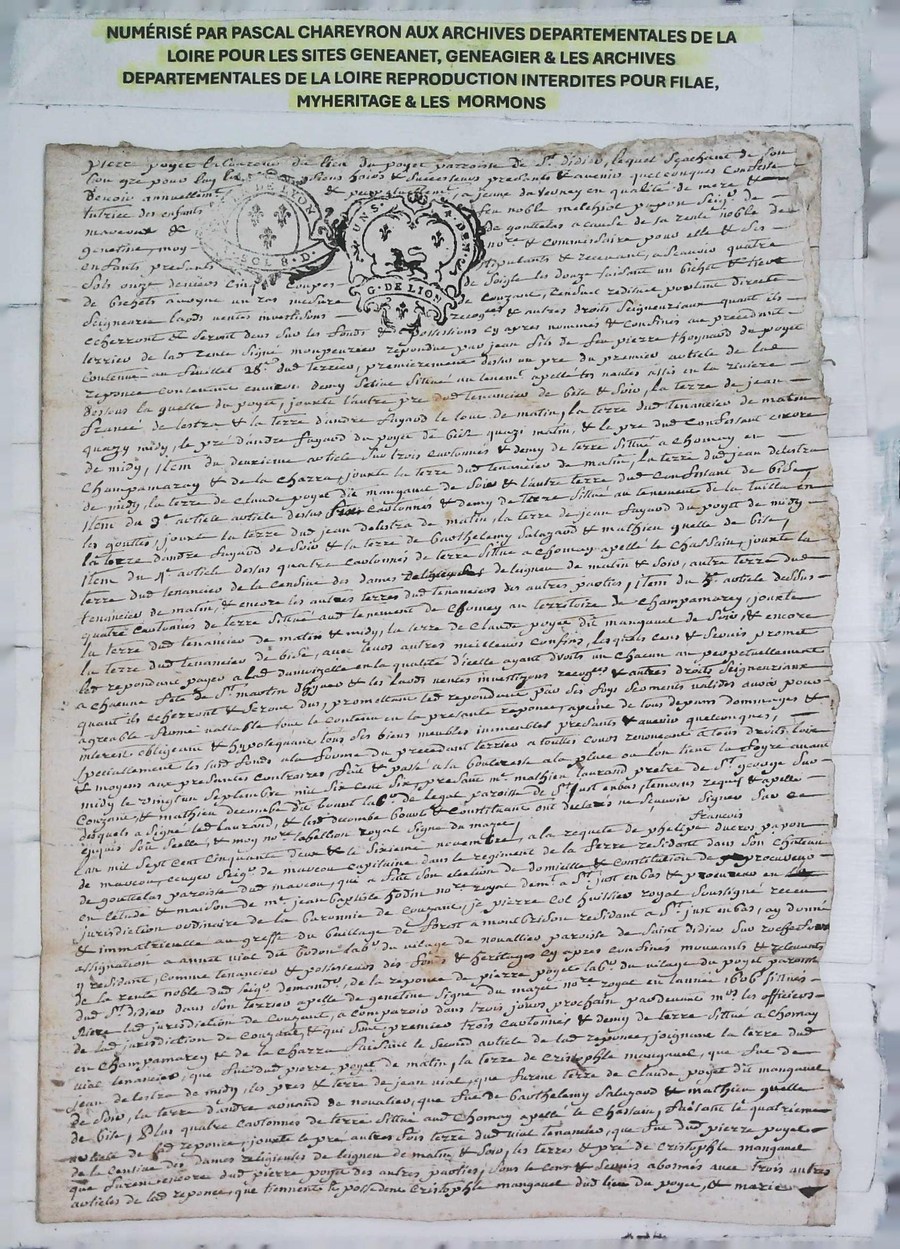 NUMÉRISÉ PAR PASCAL CHAREYRON AUX ARCHIVES DEPARTEMENTALES DE LA
LOIRE POUR LES SITES GENEANET, GENEAGIER & LES ARCHIVES
DEPARTEMENTALES DE LA LOIRE REPRODUCTION INTERDITES POUR FILAE,
MYHERITAGE & LES MORMONS
pierre poyet laboureur du lieu du poyet parroisse de St didier, lequel Sçachant de son
bon gre pour luy hoirs & Successeurs presents & avenir quelconques Confesse
Devoir annuellement & perpetuellement a jeune du Verney en qualité de mere &
tutrice des enfants feu noble melchiol papon Seigr de
maveour de de gouttelas a cause de la rente noble de
genetine, moy nore & Commissaire pour elle & Ses
enfants, presants Stipulants & recevant, a Scavoir quatre
Sols onze deniers Coupes de Soigle les douze faisant un bichet &
de bichets avoyne un ras mesure de Couzant, Censive portant directe
Seigneurie lauds ventes investisons & autres droits Seigneuriaux quant ils
echerront & Seront deus Sur les fonds & possessions Cy apres nommés & Confinés au précédant
terrier de lad rente Signé repondue par jean fils de feu pierre du poyet
Contenue au feuillet 28e dud terrier, premierement dessus un pre du premier article de lad
reponce Contenant environ demy Situé au tenent appellé assis en la riviere
dessous la quelle du poyet, jouxte l'autre pre dud tenancier de bise & Soir, la terre de jean
de lestra & la terre d'andre fayard le tout de matin, la terre dud tenancier de matin
quazy midy, le pre d'andre fayard du poyet de bise quazi matin, & le pre dud Confessant encore
de midy, item du deuxieme article Sur trois Cartonnes & demy de terre Situé a Chomay, en
Champamaray & de la Charra, jouxte la terre dud tenancier de matin, la terre dud jean delestra
de midy, la terre de Claude poyet dit mangavel de Soir & l'autre terre dud Confessant de bise
item du 3e article dessus Cartonnes & demy de terre Situé au tenement de la
les gouttes, jouxte la terre dud jean delestra de matin, la terre de jean fayard du poyet de midy
la terre d'andre fayard de Soir & la terre de Barthelemy Salazard & mathieu quelle de bise,
item du 4e article dessus quatre Cartonnes de terre Situé a Chomay appellé le Chassain, jouxte la
terre dud tenancier de la Censive des dames de leigneu de matin & Soir, autre terre dud
tenancier de matin, & encore les autres terres dud tenancier des autres parties, item du 5e article dessus
quatre Cartonnes de terre Situé aud tenement de Chomay au territoire de Champamarey, jouxte
la terre dud tenancier de matin & midy, la terre de Claude poyet dit mangavel de Soir, & encore
la terre dud tenancier de bise, avec leurs autres meilleurs Confins, lesquels Cens & Servis promet
led repondant payer a lad damoizelle en la qualité d'icelle ayant droits un Chacun an perpetuellement
a chacune fete de St martin & les lauds ventes investisons & autres droits Seigneuriaux
quant ils echerront & Seront dus, promettant led repondant par Ses foys Serments validés avoir pour
agreable ferme vallable tout le Contenu en la presante reponce, a peine de tous depens dommages &
interest obligeant & hypotequant tous Ses biens meubles immeubles presants & avenir quelconques,
Specialement les Sud fonds a la forme du precedant terrier a toutes Cours renonceant a tous droits
& moyens aux presantes Contraires fait & passé a la bouteresse a la place ou l'on tient la foyre avant
midy le vingtun Septembre mil Six cent Six, presant me mathieu laurand pretre de St george Sur
Couzant, & mathieu decombe dit bouvt labr de legat paroisse de St just enbas, temoins requis & apelle
desquels a Signé led laurand, & led decombe bouvt & Constituant ont declares ne Scavoir Signer Sur ce
enquis Soit Scelle, & moy nore tabellion royal Signé du mazet
françois
l'an mil Sept Cent Cinquante deux & le Sixieme novembre, a la requete de phelipe ducros papon
de maveou, ecuyer Seigr de maveou Capitaine dans le regiment de la ferre residant dans Son Chateau
de gouttelas paroisse dud maveou, qui a fait Son election de domicille & Constitution de procureur
en l'etude & maison de me jean baptiste hodin nore royal demt a St just enbas & procureur en
jurisdiction ordinaire de la baronnie de Couzant, je pierre Col huissier royal Soussigné receu
& immatriculé au greffe du bailliage de forest a montbrison residant a St just enbas, ay donné
assignation a annet vial dit bodon labr du village de nouallieu paroisse de Saint didier Sur rochefort
y residant, Comme tenancier & possesseur des fonds & heritages Cy apres Confines mouvants & relevants
de la rente noble dud Seigr demandr, de la reponce de pierre poyet labr du village du poyet paroisse
dud St didier dans Son terrier apelle de genetine Signé du mazet nore royal en l'annee 1606 Situés
riere lad jurisdiction de Couzant, a Comparoir dans trois jours prochain pardevant mrs les officiers
de lad jurisdiction de Couzant, & qui Sont, premier trois Cartonnes & demy de terre Situé a Chomay
en Champamarey & de la Charra faisant le Second article de lad reponce, joignant la terre dud
vial tenancier, que fut dud pierre poyet de matin, la terre de Cristophle mangavel, que fut de
jean de lestra de midy, les pres & terre de jean vial, que furent terre de Claude poyet dit mangavel
de Soir, la terre d'andre de novalieu, que fut de Barthelemy Salazard & mathieu quelle
de bise, Plus quatre Cartonnes de terre Situé aud Chomay apellé le Chassain, faisant le quatrieme
article de lad reponce, jouxte le pre autres fois terre dud vial tenancier, que fut dud pierre poyet
de la Censive des dames religieuses de leigneu de matin & Soir, les terres & pré de Cristophle mangavel
que furent encore dud pierre poyet des autres parties, Sous le Cens & Servis abonnés avec trois autres
articles de lad reponce, que tiennent & possedent Cristophle mangavel dud lieu du poyet, & marie